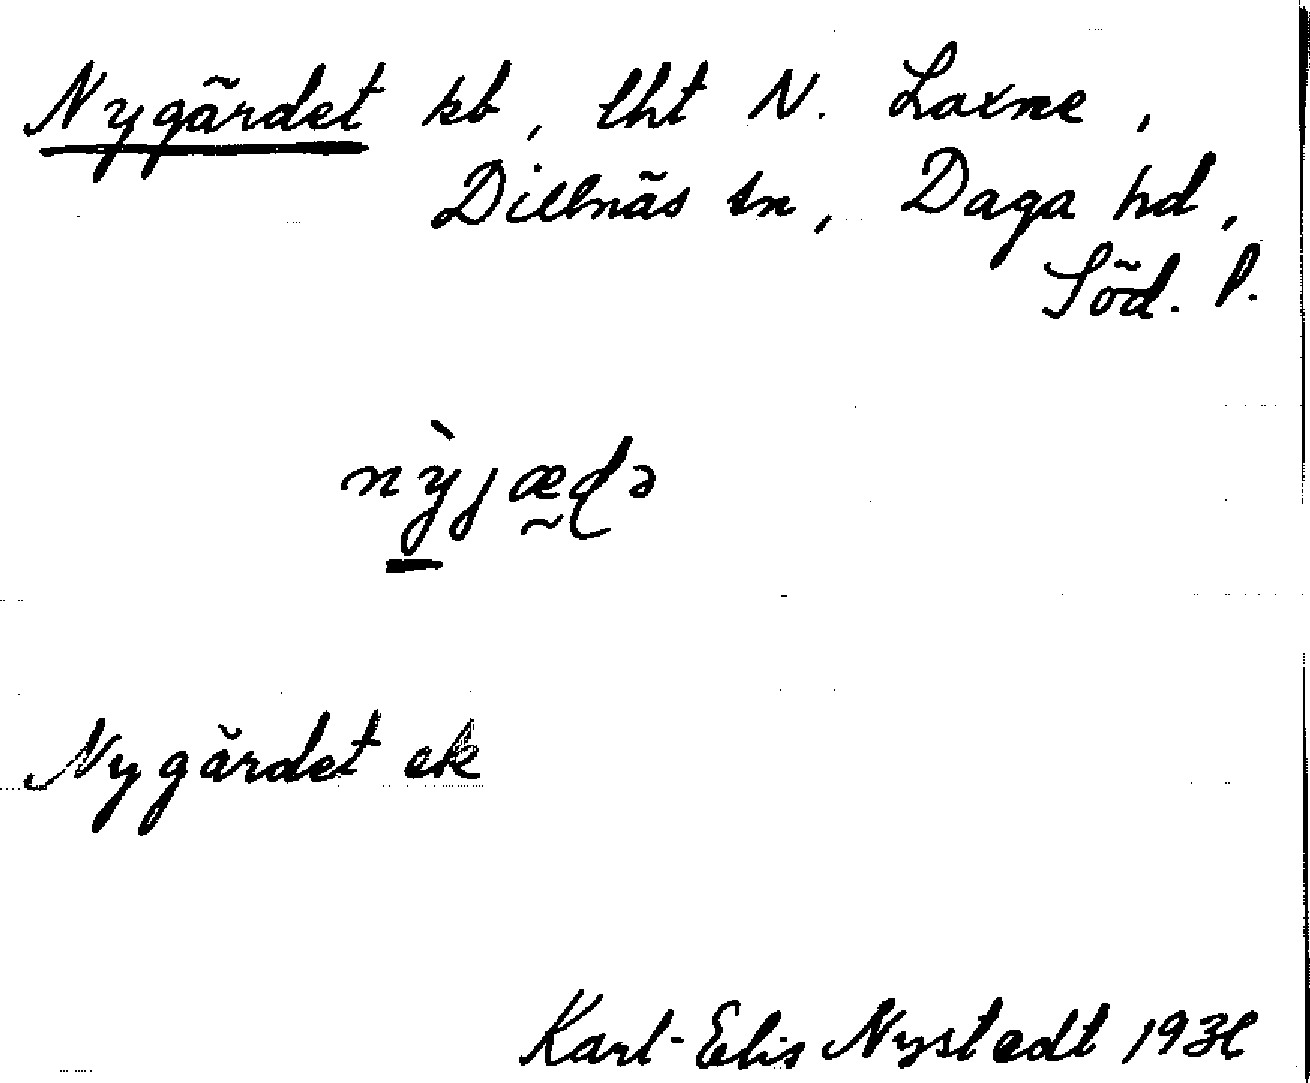 Nygärdet kb, tht N. Laxne,
Dillnäs sn, Daga hd,
Söd. l.
nỳjæḍə
Nygärdet ek
Karl-Elis Nystedt